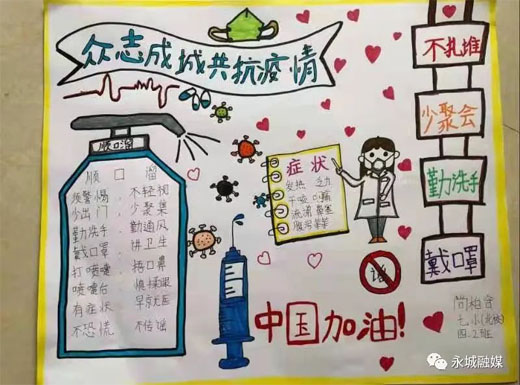 众志成城共抗疫情
不扎堆
少聚会
勤洗手
戴口罩
顺口溜
顺 口 溜
须警惕,不轻视
少出门,少聚集
勤洗手,勤通风
戴口罩,讲卫生
打喷嚏,捂口鼻
喷嚏后,慎揉眼
有症状,早就医
不恐慌,不传谣
症状
发热 乏力
干咳
流涕 鼻塞
腹泻
谣
中国加油!
七小(北校)
四.2班
永城融媒